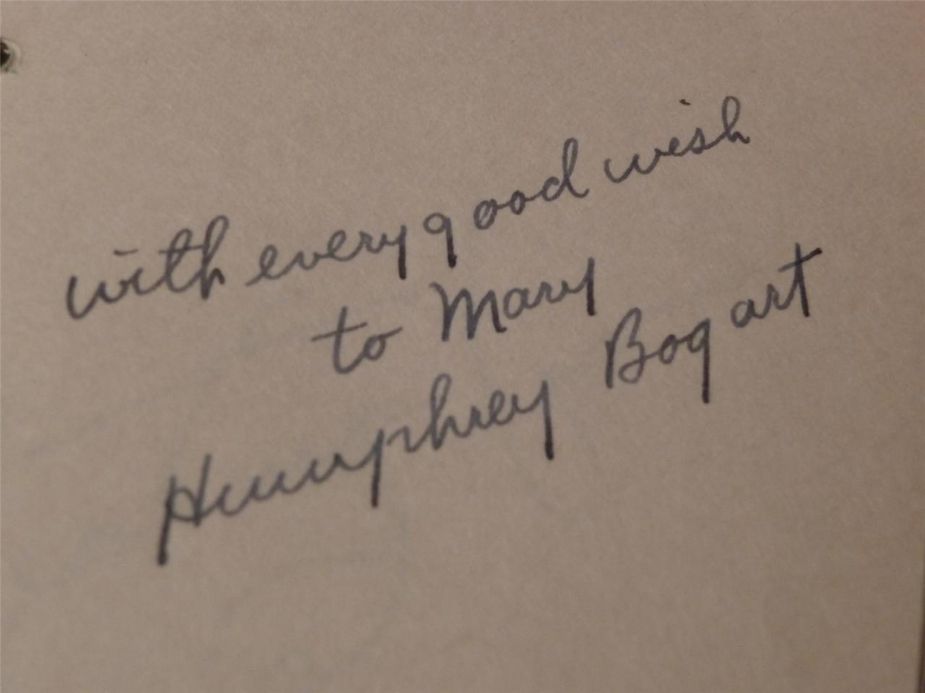 with every good wish
to Mary
Humphrey Bogart